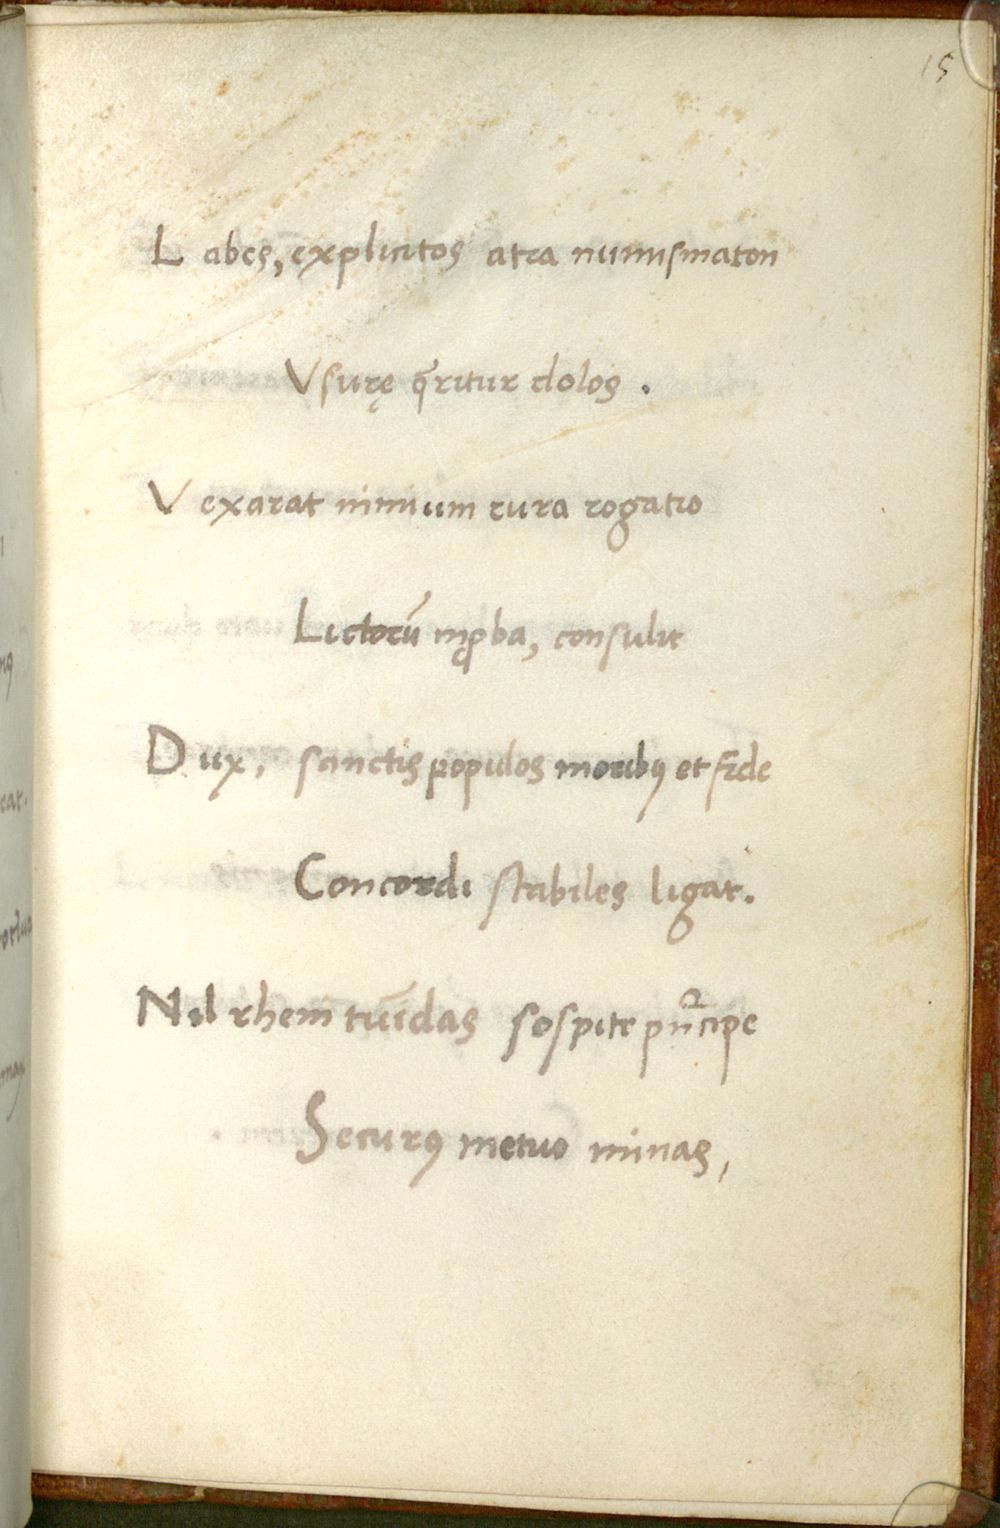 15
L abes, explicitos atra numismaton
Vsurę q̄ritur dolos .
V exarat nimium cura rogatio
Lictorū inꝓba, consulit
D ux, sanctis populos moribꝯ et fide
Concordi stabiles ligat.
Nil rheni tūidas sospite pn̄cipe
Securꝯ metuo minas,